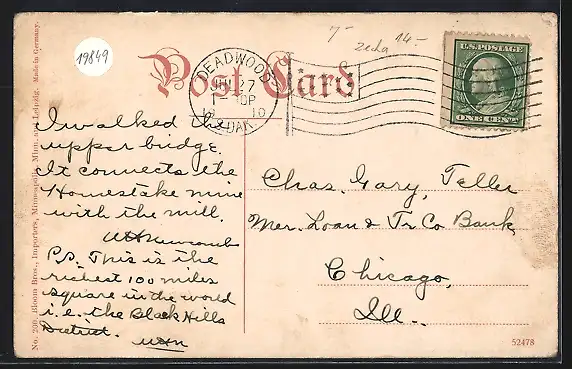 19849
7-
zeda
14-
Post Card
DEADWOOD
JUN 27
1 30P
19 10
S. DAK.
U.S. POSTAGE
ONE CENT
I walked the
upper bridge.
It connects the
Homestake mine
with the mill.
WH Newcomb
P.S. This is the
richest 100 miles
square in the world
i.e. the Black Hills
District. WHN
Chas. Gary, Teller
Mer. Loan & Tr Co Bank,
Chicago,
Ill.
No. 200. Bloom Bros., Importers, Minneapolis, Minn. and Leipzig. Made in Germany.
52478